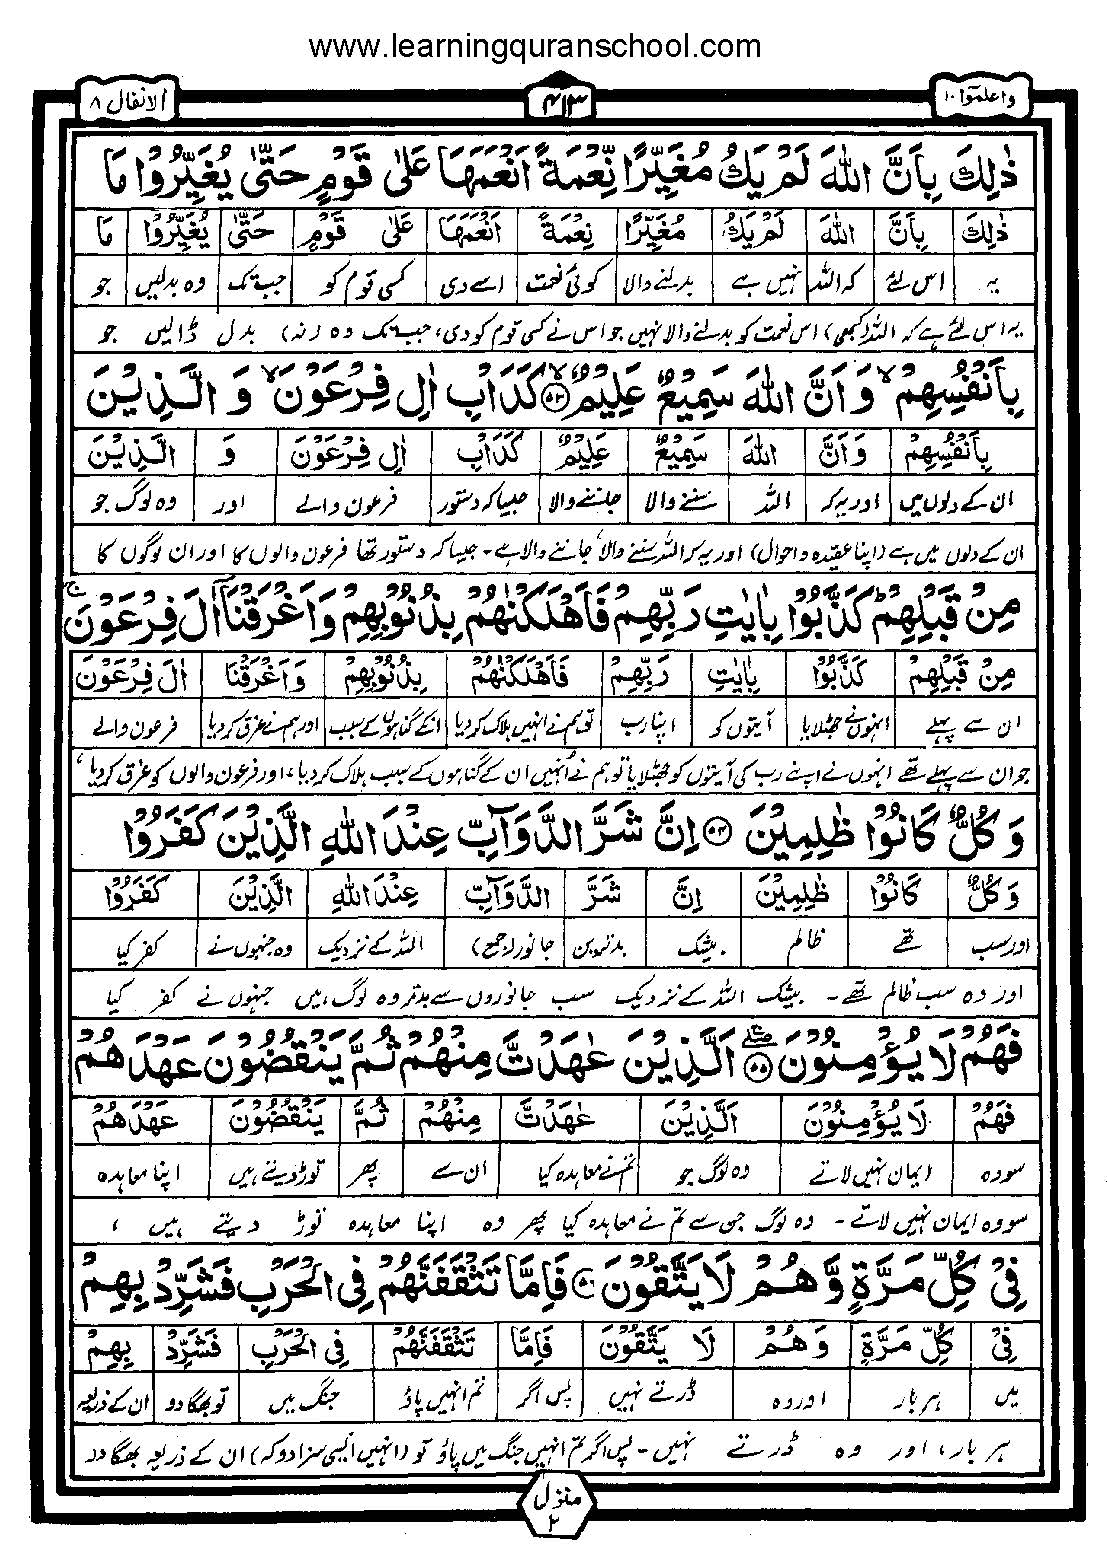 www.learningquranschool.com
واعلموا ۱۰
۴۱۳
الانفال ۸
ذٰلِكَ بِاَنَّ اللّٰهَ لَمْ يَكُ مُغَيِّرًا نِّعْمَةً اَنْعَمَهَا عَلٰى قَوْمٍ حَتّٰى يُغَيِّرُوْا مَا
ذٰلِكَ بِاَنَّ اللّٰهَ لَمْ يَكُ مُغَيِّرًا نِعْمَةً اَنْعَمَهَا عَلٰى قَوْمٍ حَتّٰى يُغَيِّرُوْا مَا
یہ اس لئے کہ اللہ نہیں ہے بدلنے والا کوئی نعمت اسے دی کسی قوم کو جب تک وہ بدلیں جو
یہ اس لئے ہے کہ اللہ (کبھی) اس نعمت کو بدلنے والا نہیں جو اس نے کسی قوم کو دی، جب تک وہ (نہ) بدل ڈالیں جو
بِاَنْفُسِهِمْ ۙ وَاَنَّ اللّٰهَ سَمِيْعٌ عَلِيْمٌ ۙ۵۳ كَدَاْبِ اٰلِ فِرْعَوْنَ ۙ وَ الَّذِيْنَ
بِاَنْفُسِهِمْ وَاَنَّ اللّٰهَ سَمِيْعٌ عَلِيْمٌ كَدَاْبِ اٰلِ فِرْعَوْنَ وَ الَّذِيْنَ
ان کے دلوں میں اور یہ کہ اللہ سننے والا جاننے والا جیسا کہ دستور فرعون والے اور وہ لوگ جو
ان کے دلوں میں ہے (اپنا عقیدہ و احوال) اور یہ کہ اللہ سننے والا، جاننے والا ہے۔ جیسا کہ دستور تھا فرعون والوں کا اور ان لوگوں کا
مِنْ قَبْلِهِمْ ؕ كَذَّبُوْا بِاٰيٰتِ رَبِّهِمْ فَاَهْلَكْنٰهُمْ بِذُنُوْبِهِمْ وَاَغْرَقْنَاۤ اٰلَ فِرْعَوْنَ ۚ
مِنْ قَبْلِهِمْ كَذَّبُوْا بِاٰيٰتِ رَبِّهِمْ فَاَهْلَكْنٰهُمْ بِذُنُوْبِهِمْ وَاَغْرَقْنَا اٰلَ فِرْعَوْنَ
ان سے پہلے انہوں نے جھٹلایا آیتوں کو اپنا رب تو ہم نے انہیں ہلاک کر دیا انکے گناہوں کے سبب اور ہم نے غرق کر دیا فرعون والے
جو ان سے پہلے تھے انہوں نے اپنے رب کی آیتوں کو جھٹلایا تو ہم نے انہیں ان کے گناہوں کے سبب ہلاک کر دیا، اور فرعون والوں کو غرق کر دیا،
وَكُلٌّ كَانُوْا ظٰلِمِيْنَ ۵۴ اِنَّ شَرَّ الدَّوَآبِّ عِنْدَ اللّٰهِ الَّذِيْنَ كَفَرُوْا
وَكُلٌّ كَانُوْا ظٰلِمِيْنَ اِنَّ شَرَّ الدَّوَآبِّ عِنْدَ اللّٰهِ الَّذِيْنَ كَفَرُوْا
اور سب تھے ظالم بیشک بدترین جانور (جمع) اللہ کے نزدیک وہ جنہوں نے کفر کیا
اور وہ سب ظالم تھے۔ بیشک اللہ کے نزدیک سب جانوروں سے بدتر وہ لوگ ہیں جنہوں نے کفر کیا
فَهُمْ لَا يُؤْمِنُوْنَ ۵۵ اَلَّذِيْنَ عٰهَدْتَّ مِنْهُمْ ثُمَّ يَنْقُضُوْنَ عَهْدَهُمْ
فَهُمْ لَا يُؤْمِنُوْنَ اَلَّذِيْنَ عٰهَدْتَّ مِنْهُمْ ثُمَّ يَنْقُضُوْنَ عَهْدَهُمْ
سو وہ ایمان نہیں لاتے وہ لوگ جو تم نے معاہدہ کیا ان سے پھر توڑ دیتے ہیں اپنا معاہدہ
سو وہ ایمان نہیں لاتے۔ وہ لوگ جن سے تم نے معاہدہ کیا پھر وہ اپنا معاہدہ توڑ دیتے ہیں،
فِيْ كُلِّ مَرَّةٍ وَّهُمْ لَا يَتَّقُوْنَ ۵۶ فَاِمَّا تَثْقَفَنَّهُمْ فِي الْحَرْبِ فَشَرِّدْ بِهِمْ
فِيْ كُلِّ مَرَّةٍ وَهُمْ لَا يَتَّقُوْنَ فَاِمَّا تَثْقَفَنَّهُمْ فِي الْحَرْبِ فَشَرِّدْ بِهِمْ
میں ہر بار اور وہ ڈرتے نہیں پس اگر تم انہیں پاؤ جنگ میں تو بھگا دو ان کے ذریعہ
ہر بار، اور وہ ڈرتے نہیں۔ پس اگر تم انہیں جنگ میں پاؤ تو (انہیں ایسی سزا دو کہ) ان کے ذریعہ بھگا دو
منزل
۲